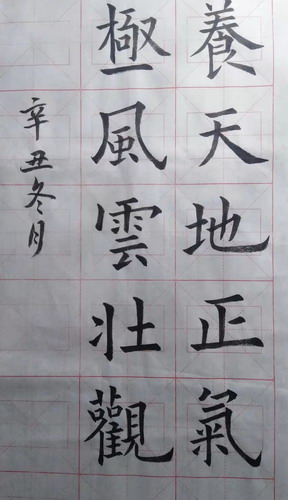 養天地正氣
極風雲壯觀
辛丑冬月